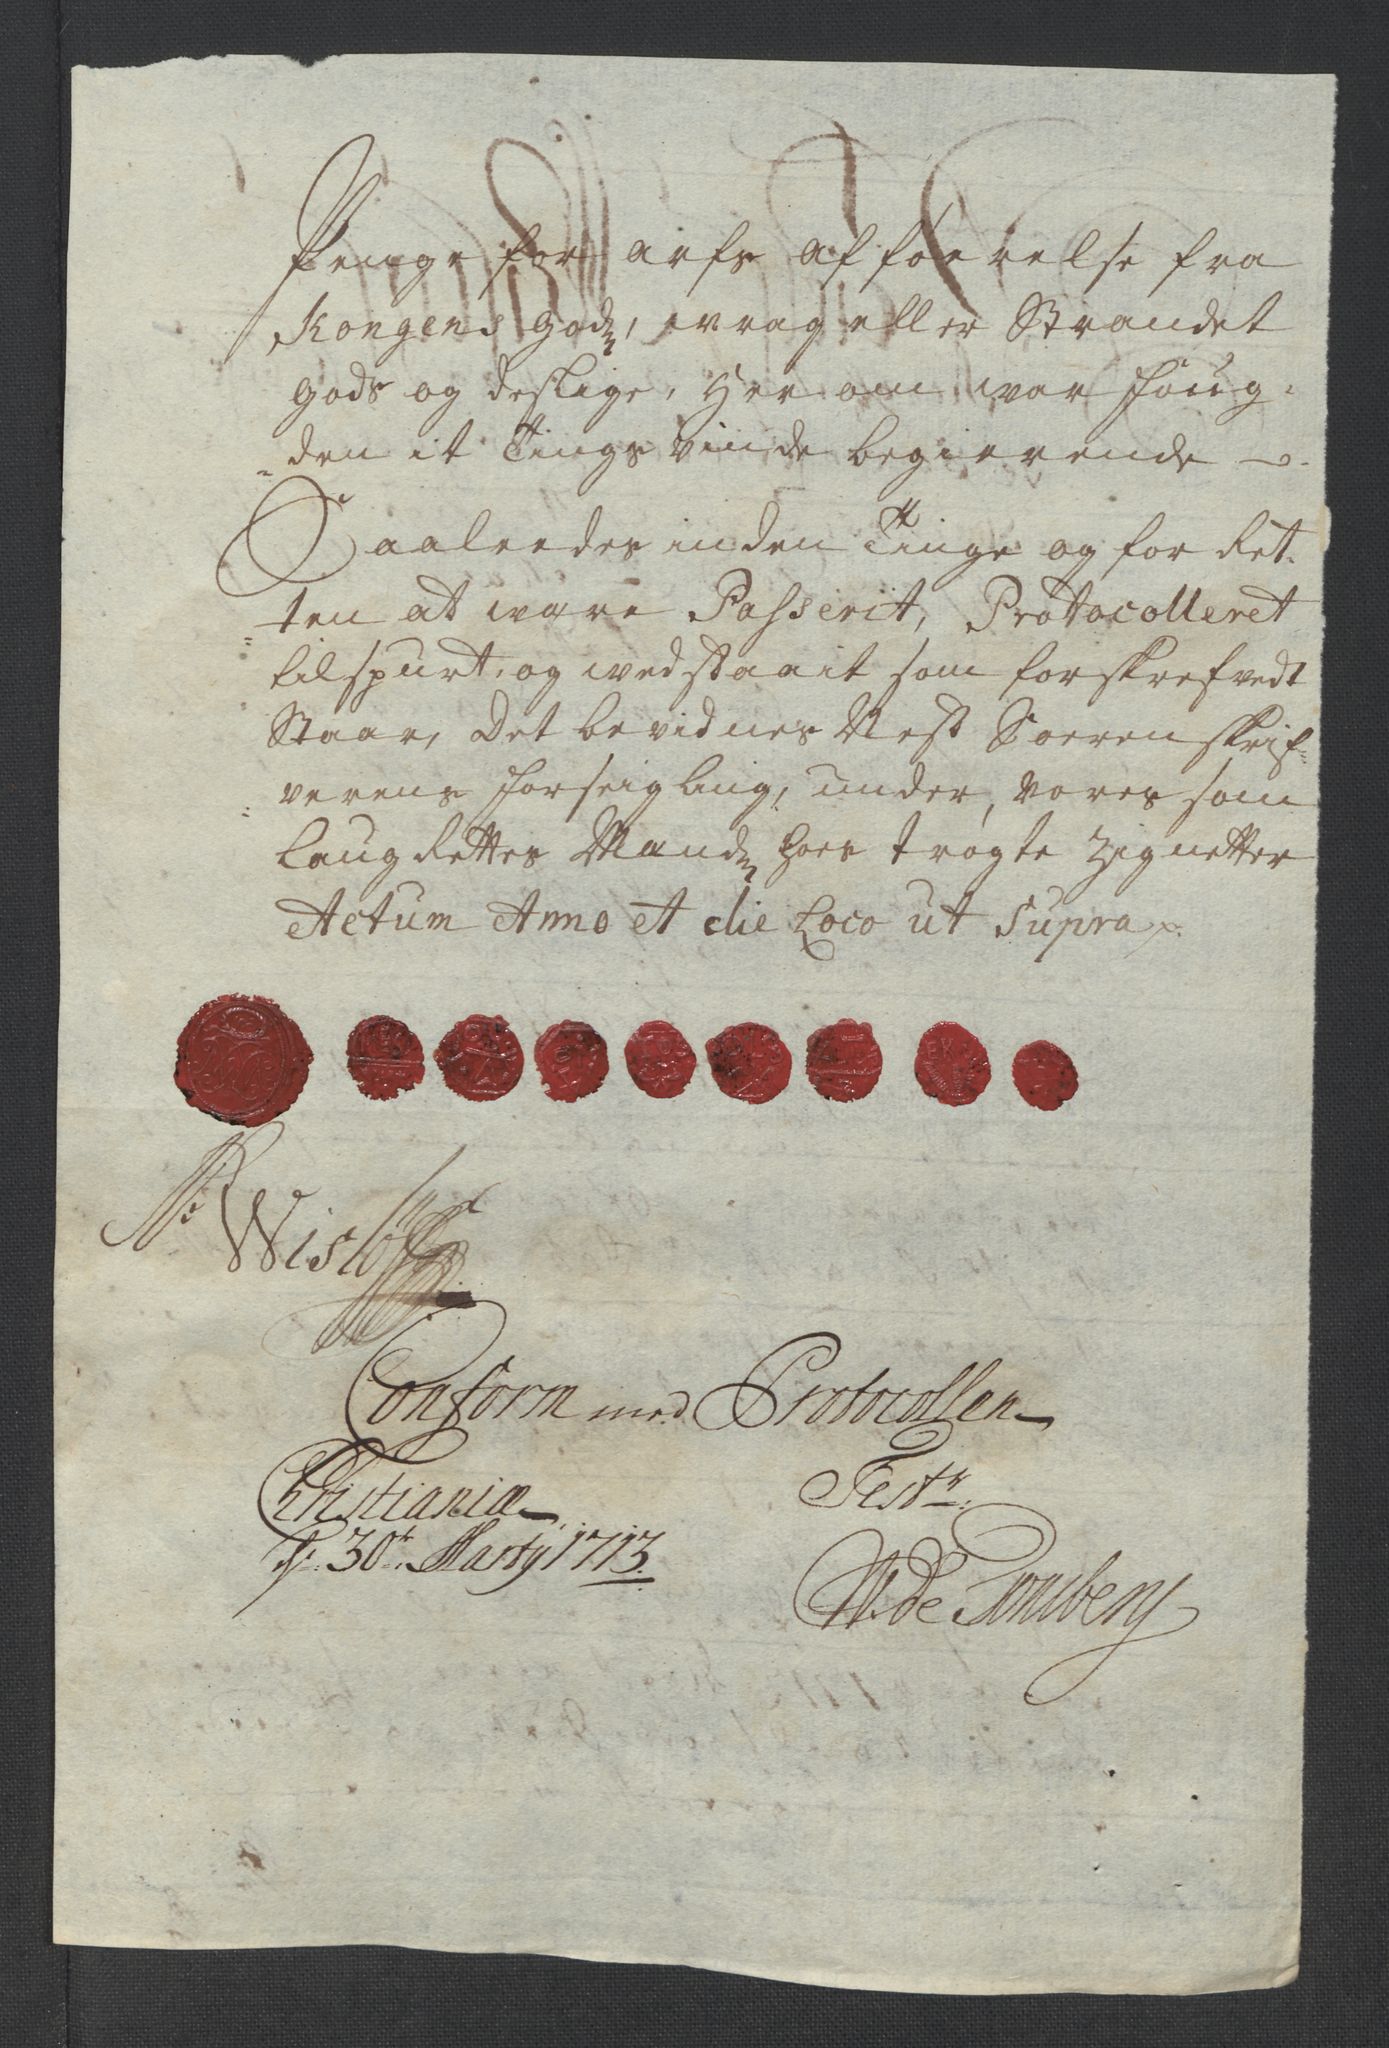 Penge for arfs afføerelse fra
Kongens Godz, wrag eller Strandet
gods og deslige, Her om war foug-
den it Tings vinde begierende
Saaleedes inden Tinge og for Ret-
ten at ware Passerit, Protocolleret
tilspurt, og wedstaait som forskrefvedt
Staar, Det bevidnes Nest Soerenskrif-
verens forseigling, under vores som
Laug Rettes Mænd hoes trøgte Zignetter
Actum Anno et die Loco ut Supra
Wisløff
Conform med Protocollen
Christianiæ
Test:
d: 30t: Marty 1713.
W: de Tonsberg